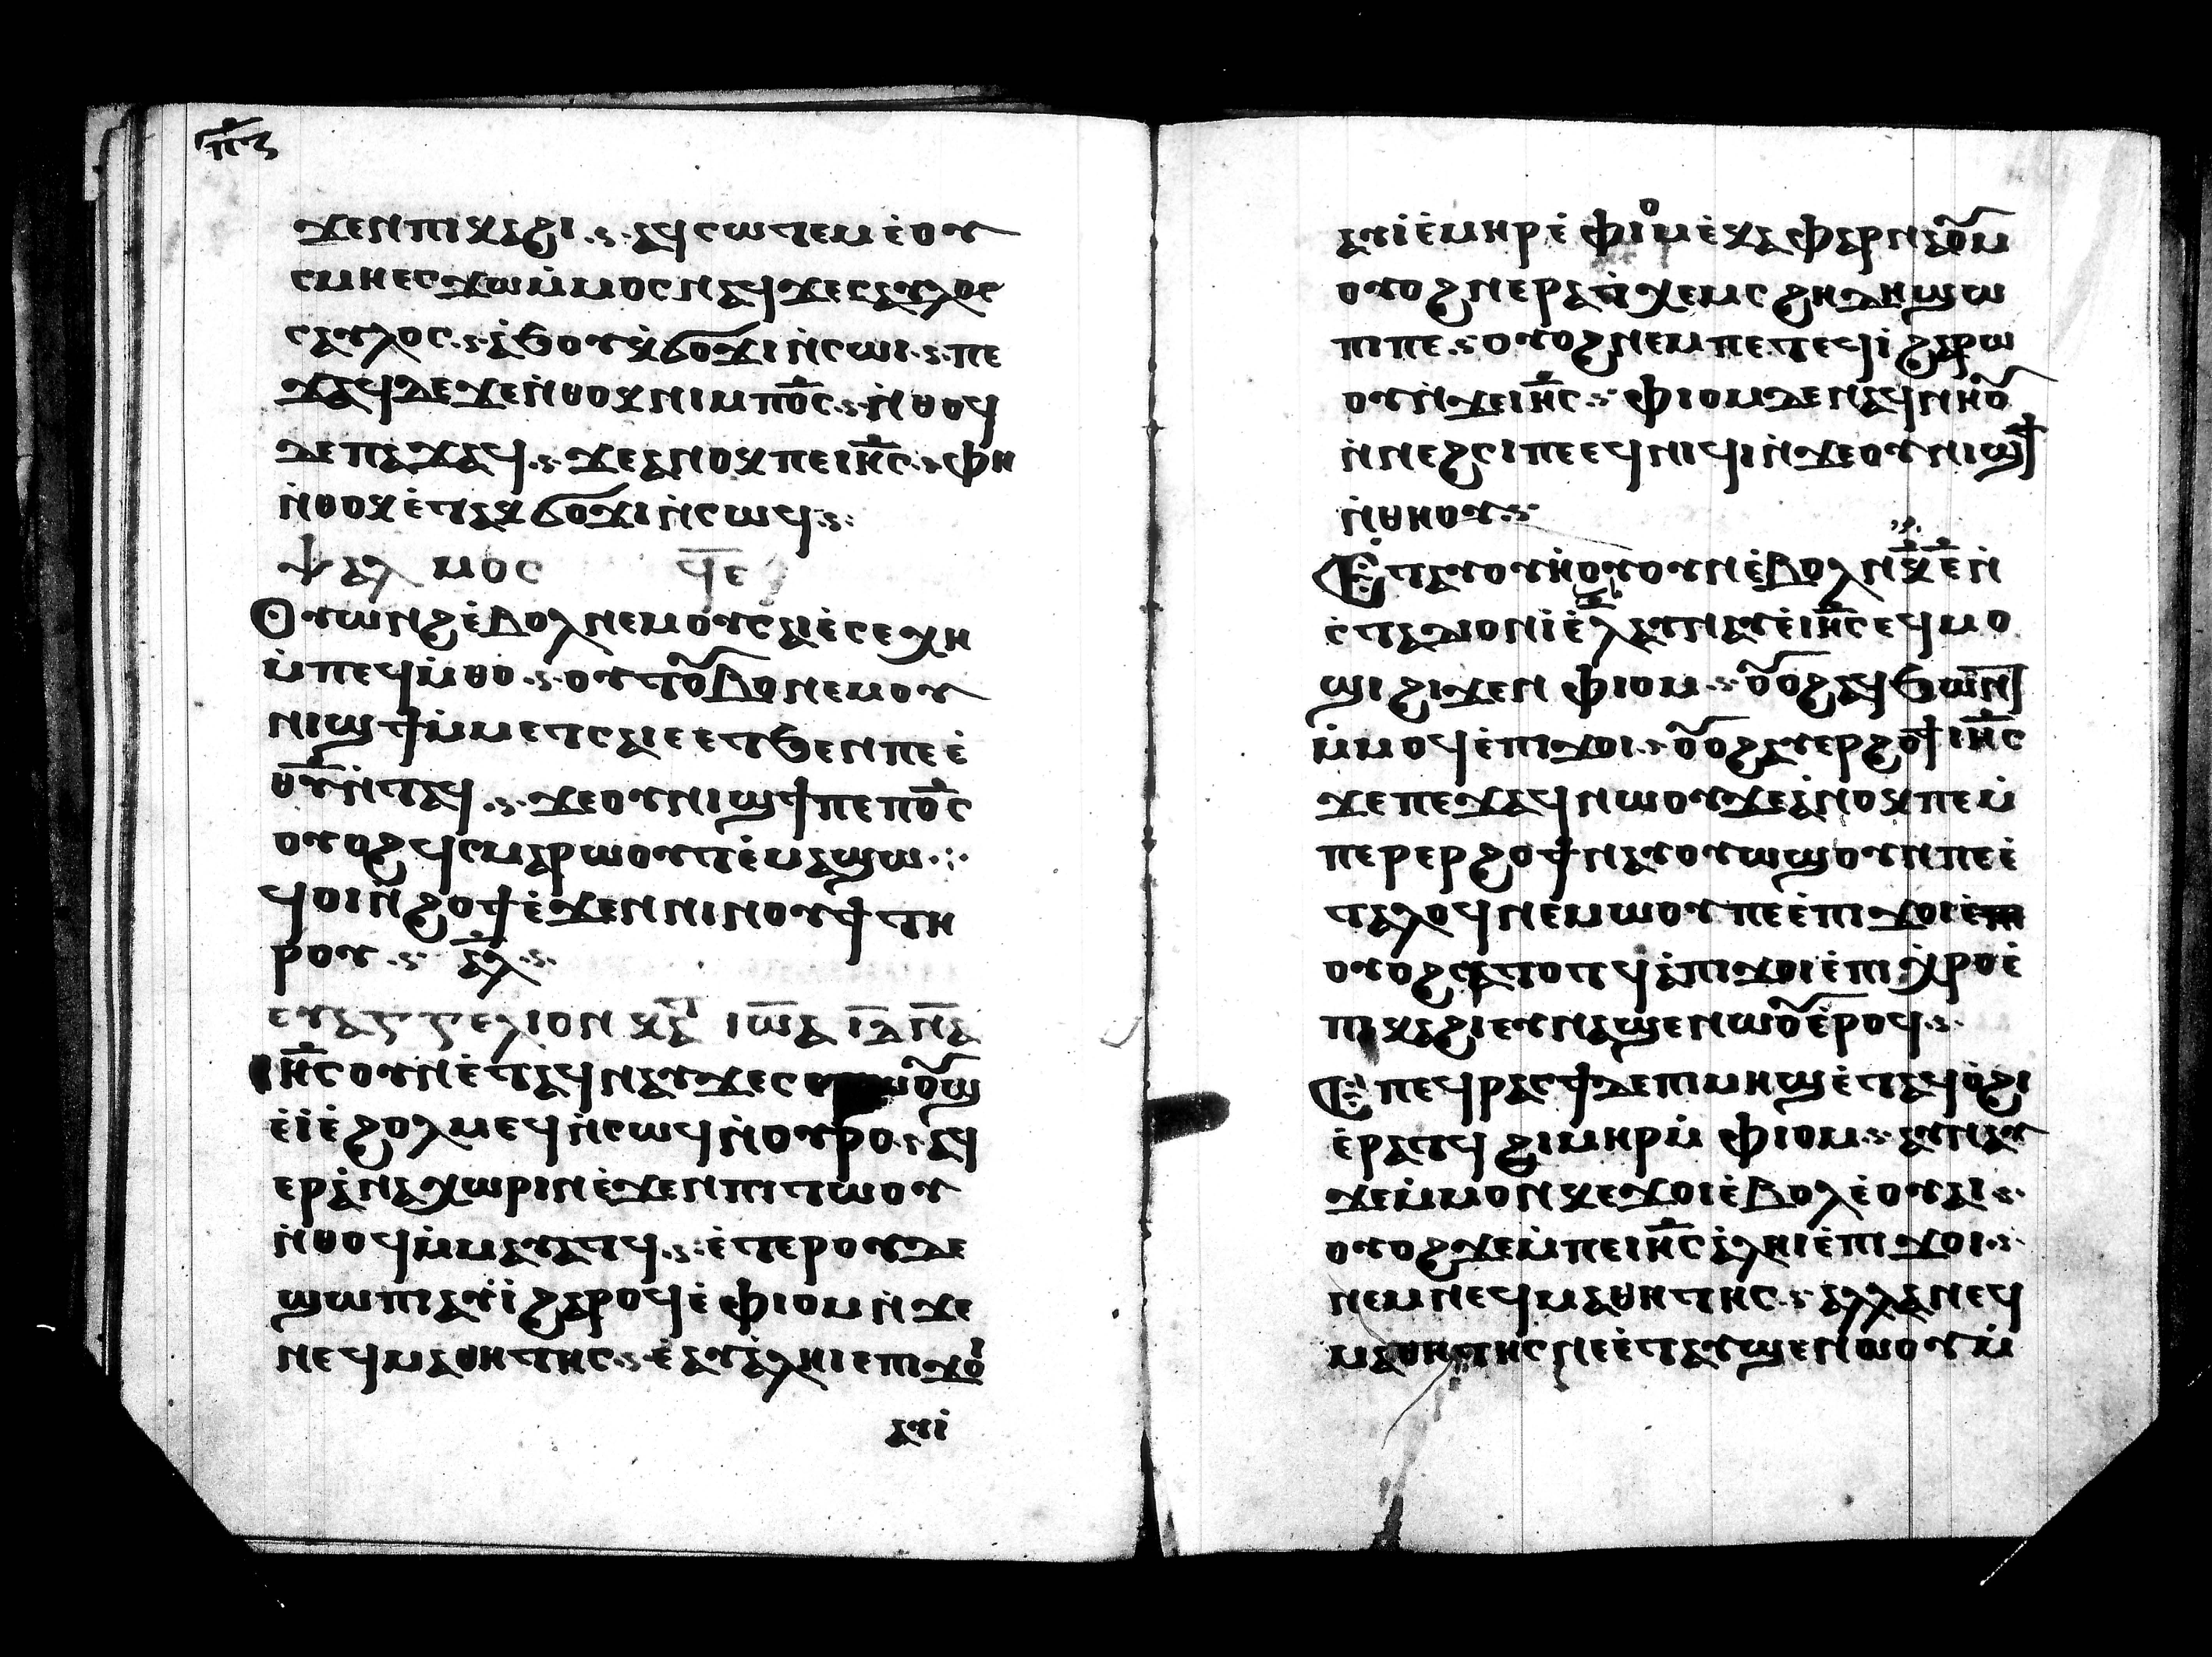 ⲡ̅ⲍ
ϫⲉⲛⲡⲓⲕⲁϩⲓ ⲁϥⲥⲱⲧⲉⲙ ⲉ̀ⲟⲩ
ⲥⲙⲏⲉⲥϫⲱⲙ̀ⲙⲟⲥⲛⲁϥϫⲉⲥⲁⲩⲗⲟⲥ
ⲥⲁⲩⲗⲟⲥ ⲁ̀ϧⲟⲩⲕ̀ϭⲟϫⲓ ⲛ̀ⲥⲱⲓ ⲡⲉ
ϫⲁϥⲇⲉϫⲉⲛ̀ⲑⲟⲕⲛⲓⲙⲡⲟ̅ⲥ ⲛ̀ⲑⲟϥ
ⲇⲉⲡⲁϫⲁϥ ϫⲉⲁⲛⲟⲕⲡⲉⲓⲏ̅ⲥ ⲫⲏ
ⲛ̀ⲑⲟⲕⲉ̀ⲧⲁⲕϭⲟϫⲓⲛ̀ⲥⲱϥ
ⲯⲁⲗⲙⲟⲥ ϥ̅ⲉ
Ⲟⲩⲱⲛϩⲉ̀ⲃⲟⲗⲛⲉⲙⲟⲩⲥⲁⲓⲉ̀ⲥⲉⲭⲏ
ⲙ̀ⲡⲉϥⲙ̀ⲑⲟ ⲟⲩⲧⲟ̅ⲃⲟⲛⲉⲙⲟⲩ
ⲛⲓϣϯⲙ̀ⲙⲉⲧⲥⲁⲓⲉⲉⲧϧⲉⲛⲡⲉⲉ̀
ⲑ̅ⲩⲛ̀ⲧⲁϥ ϫⲉⲟⲩⲛⲓϣϯⲡⲉⲡⲟ̅ⲥ
ⲟⲩⲟϩϥⲥⲙⲁⲣⲱⲟⲩⲧⲉ̀ⲙⲁϣⲱ
ϥⲟⲓⲛ̀ϩⲟϯⲉ̀ϫⲉⲛⲛⲓⲛⲟⲩϯⲧⲏ
ⲣⲟⲩ ⲁ̅ⲗ
ⲉⲩⲁⲅⲅⲉⲗⲓⲟⲛ ⲕⲁ̅ ⲓⲱ̅ⲁ
ⲓⲏ̅ⲥⲟⲩⲛⲉ̀ⲧⲁϥⲛⲁⲩϫⲉⲥⲉ
ⲉ̀ⲓ̀ⲉ̀ϩⲟⲗⲙⲉϥⲛ̀ⲥⲱϥⲛ̀ⲟⲩⲣⲟ ⲁϥ
ⲉⲣⲁ̀ⲛⲁⲭⲱⲣⲓⲛⲉ̀ϫⲉⲛⲡⲓⲧⲱⲟⲩ
ⲛ̀ⲑⲟϥⲙ̀ⲙⲁⲩⲁⲧϥ ⲉ̀ⲧⲉⲣⲟⲩϩⲉ
ϣⲱⲡⲓⲁⲩⲓ̀ϩⲁⲣⲟϥⲉ̀ⲫⲓⲟⲙⲛ̀ϫⲉ
ⲛⲉϥⲙⲁⲑⲏⲧⲏⲥ ⲉ̀ⲁⲩⲁⲗⲏⲓⲉⲡⲓϫⲟⲓ
ⲁⲩⲓ̀
ⲁⲩⲓ̀ⲉ̀ⲙⲏⲣⲉ̀ⲫⲓⲟⲙⲉ̀ⲕⲁⲫⲁⲣⲛⲁⲟ̅ⲙ
ⲟⲩⲟϩⲛⲉⲣⲁ̀ⲡⲭⲉⲙⲥϩⲏⲇⲏϣⲱ
ⲡⲓⲡⲉ ⲟⲩⲟϩⲛⲉⲙⲡⲉⲧⲉϥⲓ̀ϩⲁⲣⲱ
ⲟⲩⲛ̀ϫⲉⲓⲏ̅ⲥ ⲫⲓⲟⲙⲇⲉⲛⲁϥⲛⲏⲟ̅
ⲛ̀ⲛⲉϩⲥⲓⲡⲉⲉϥⲛⲓϥⲓⲛ̀ϫⲉⲟⲩⲛⲓϣϯ
ⲛ̀ⲑⲏⲟⲩ
Ⲉ̀ⲧⲁⲩⲟⲩⲏ̀ⲟⲩⲟⲩⲛⲉ̀ⲃⲟⲗⲛⲕ̅ⲉ̅ⲛ̀
ⲥ̀ⲧⲁⲇⲓⲟⲛⲓⲉ̀ⲗ̅ⲁⲩⲛⲁⲩⲉ̀ⲓⲏ̅ⲥⲉϥⲙⲟ
ϣⲓϩⲓϫⲉⲛⲫⲓⲟⲙ ⲟ̅ⲟϩⲁϥϧⲱⲛⲧ
ⲙ̀ⲙⲟϥⲉ̀ⲡⲓϫⲟⲓ ⲟ̅ⲟϩⲁⲩⲉⲣϩⲟϯⲓⲏ̅ⲥ
ϫⲉⲡⲉϫⲁϥⲛⲱⲟⲩϫⲉⲁ̀ⲛⲟⲕⲡⲉⲙ̀
ⲡⲉⲣⲉⲣϩⲟϯⲛⲁⲩⲟⲩⲱϣⲟⲩⲛⲡⲉⲉ̀
ⲧⲁⲗⲟϥⲛⲉⲙⲱⲟⲩⲡⲉⲉ̀ⲡⲓϫⲟⲓ
ⲟⲩⲟϩⲥⲁⲧⲟⲧϥⲁ̀ⲡⲓϫⲟⲓⲉ̀ⲡⲓⲭ̀ⲣⲟⲉ̀
ⲡⲓⲕⲁϩⲓⲉⲩⲛⲁϣⲉⲛⲱⲟ̅ⲉ̀ⲣⲟϥ
Ⲉ̀ⲡⲉϥⲣⲁⲥϯⲇⲉⲡⲓⲙⲏϣⲉ̀ⲧⲁϥⲟ̀ϩⲓ
ⲉ̀ⲣⲁⲧϥϩⲓⲙⲏⲣⲙ̀ⲫⲓⲟⲙ ⲁⲩⲛⲁⲩ
ϫⲉⲙ̀ⲙⲟⲛⲕⲉϫⲟⲓⲉ̀ⲃⲟⲗⲉ̀ⲟⲩⲁⲓ
ⲟⲩⲟϩϫⲉⲙ̀ⲡⲉⲓⲏ̅ⲥⲁ̀ⲗⲏⲓⲉ̀ⲡⲓϫⲟⲓ
ⲛⲉⲙⲛⲉϥⲙⲁⲑⲏⲧⲏⲥ ⲁⲗⲗⲁⲛⲉϥ
ⲙⲁⲑⲏⲧⲏⲥⲛⲉⲉ̀ⲧⲁⲩϣⲉⲛⲱⲟⲩⲙ̀